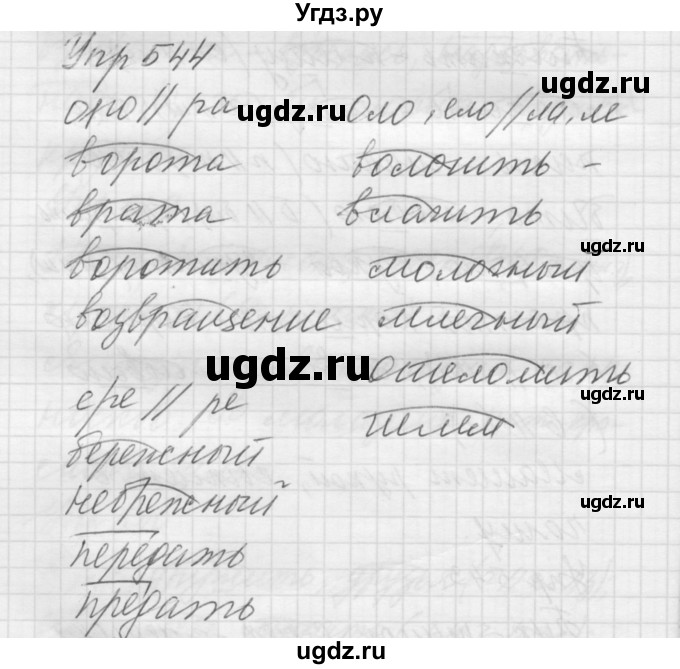 Угдз.ру
Упр 544
оро // ра
ворота
врата
воротить
возвращение
ере // ре
бережный
небрежный
передать
предать
оло, ело // ла, ле
волочить -
влачить
молочный
млечный
ошеломить
шелем
ugdz.ru
ugdz.ru
ugdz.ru
ugdz.ru
ugdz.ru
ugdz.ru
ugdz.ru
ugdz.ru
ugdz.ru